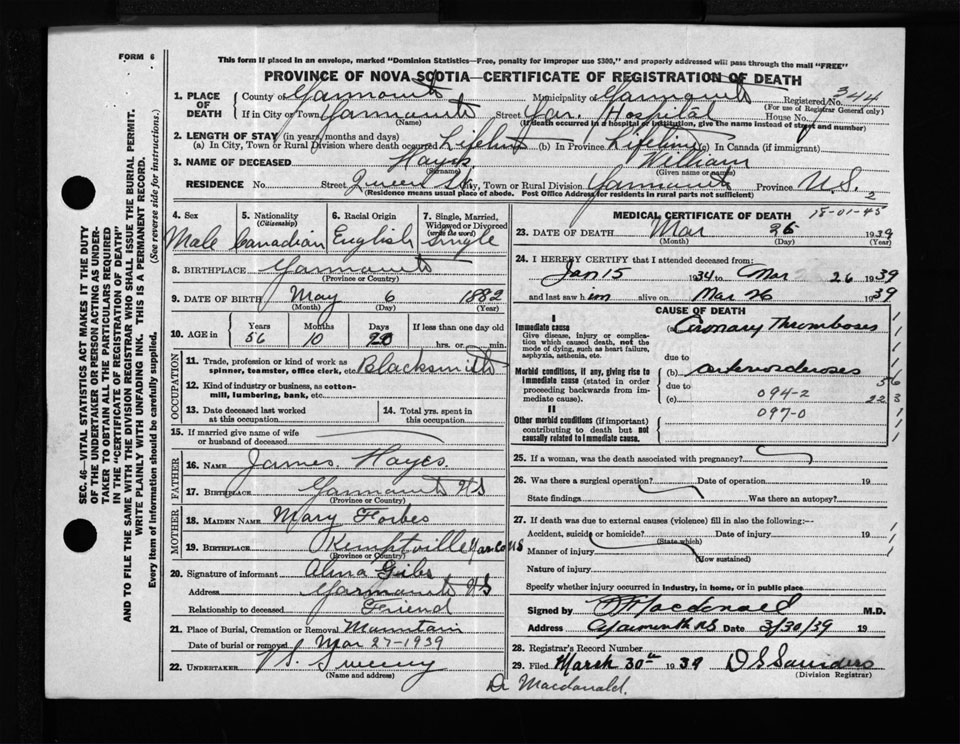 FORM 6
This form if placed in an envelope, marked "Dominion Statistics—Free, penalty for improper use $300," and properly addressed will pass through the mail "FREE"
PROVINCE OF NOVA SCOTIA—CERTIFICATE OF REGISTRATION OF DEATH
1. PLACE OF DEATH { County of Yarmouth Municipality of Yarmouth Registered No. 344
(For use of Registrar General only)
If in City or Town Yarmouth Street Yar. Hospital House No.
(Name) (If death occurred in a hospital or institution, give the name instead of street and number)
2. LENGTH OF STAY (in years, months and days)
(a) In City, Town or Rural Division where death occurred Lifetime (b) In Province Lifetime (c) In Canada (if immigrant)
3. NAME OF DECEASED Hayes William
(Surname) (Given name or names)
RESIDENCE No. Street Queen St. City, Town or Rural Division Yarmouth Province N.S.
(Residence means usual place of abode. Post Office Address for residents in rural parts not sufficient) 2
4. Sex Male
5. Nationality (Citizenship) Canadian
6. Racial Origin English
7. Single, Married, Widowed or Divorced (write the word) Single
8. BIRTHPLACE Yarmouth
(Province or Country)
9. DATE OF BIRTH May 6 1882
(Month) (Day) (Year)
10. AGE in { Years 56 Months 10 Days 20 If less than one day old
hrs. or min.
OCCUPATION
11. Trade, profession or kind of work as spinner, teamster, office clerk, etc. Blacksmith
12. Kind of industry or business, as cotton-mill, lumbering, bank, etc.
13. Date deceased last worked at this occupation
14. Total yrs. spent in this occupation
15. If married give name of wife or husband of deceased
FATHER
16. NAME James Hayes.
17. BIRTHPLACE Yarmouth NS
(Province or Country)
MOTHER
18. MAIDEN NAME Mary Forbes
19. BIRTHPLACE Kemptville Yar Co NS
(Province or Country)
20. Signature of informant Alma
Address Yarmouth NS
Relationship to deceased Friend
21. Place of Burial, Cremation or Removal Mountain
Date of burial or removal Mar 27-1939
22. UNDERTAKER V S. Sweeny
(Name and address)
MEDICAL CERTIFICATE OF DEATH 18-01-45
23. DATE OF DEATH Mar 26 1939
(Month) (Day) (Year)
24. I HEREBY CERTIFY that I attended deceased from:
Jan 15 1934 to Mar 26 1939
and last saw him alive on Mar 26 1939
CAUSE OF DEATH
I
Immediate cause
Give disease, injury or complication which caused death, not the mode of dying, such as heart failure, asphyxia, asthenia, etc.
(a) Coronary Thrombosis
due to
Morbid conditions, if any, giving rise to Immediate cause (stated in order proceeding backwards from immediate cause).
(b) arteriosclerosis
due to 56
(c) 094-2 223
II 097-0
Other morbid conditions (if important) contributing to death but not causally related to immediate cause.
25. If a woman, was the death associated with pregnancy?
26. Was there a surgical operation? Date of operation 19
State findings Was there an autopsy?
27. If death was due to external causes (violence) fill in also the following:—
Accident, suicide or homicide? Date of injury 19
(State which)
Manner of injury
(How sustained)
Nature of injury
Specify whether injury occurred in industry, in home, or in public place
Signed by Macdonald M.D.
Address Yarmouth NS Date 3/30/39 19
28. Registrar's Record Number
29. Filed March 30th 1939 D S Saunders
(Division Registrar)
Dr Macdonald.
SEC. 46—VITAL STATISTICS ACT MAKES IT THE DUTY
OF THE UNDERTAKER OR PERSON ACTING AS UNDER-
TAKER TO OBTAIN ALL THE PARTICULARS REQUIRED
IN THE "CERTIFICATE OF REGISTRATION OF DEATH"
AND TO FILE THE SAME WITH THE DIVISION REGISTRAR WHO SHALL ISSUE THE BURIAL PERMIT.
WRITE PLAINLY WITH UNFADING INK. THIS IS A PERMANENT RECORD.
Every item of information should be carefully supplied. (See reverse side for instructions.)